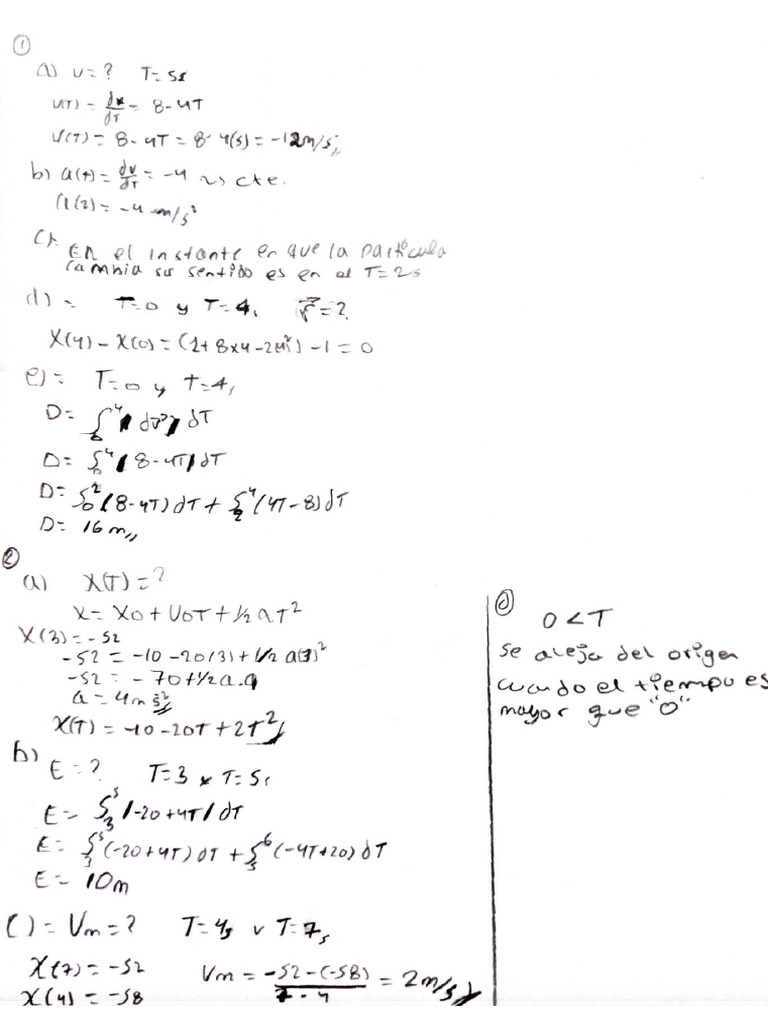 ①
a) v=? T=5s
v(T) = dx/dT = 8-4T
V(T) = 8-4T = 8-4(5) = -12m/s,,
b) a(t) = dv/dT = -4 ~> cte.
a(2) = -4 m/s²
c). En el instante en que la particula
camnia su sentido es en el T=2s
d) = T=0 y T=4, r⃗=?
X(4) - X(0) = (1+8x4-24²) -1 = 0
e) = T=0 y t=4,
D= ∫₀⁴ dT
D= ∫₀⁴ |8-4T| dT
D= ∫₀² (8-4T) dT + ∫₂⁴ (4T-8) dT
D= 16m,,
②
a) X(T) = ?
X = X0 + V0T + 1/2 aT²
X(3) = -52
-52 = -10-20(3) + 1/2 a(3)²
-52 = -70+1/2 a.9
a = 4m s²
X(T) = -10-20T+2T²
b) E=? T=3 x T=5s
E= ∫₃⁵ |-20+4T| dT
E= ∫₃⁵ (-20+4T) dT + ∫₅⁶ (-4T+20) dT
E= 10m
c) = Vm=? T=4s v T=7s
X(7) = -52 Vm = -52-(-58) / 7-4 = 2m/s
X(4) = -58
d) 0<T
se aleja del origen
cuando el tiempo es
mayor que "0"